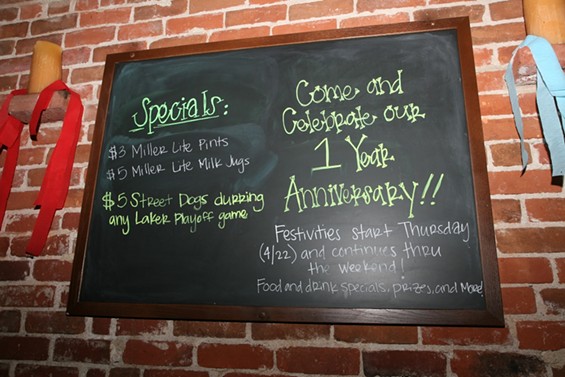 Specials:
$3 Miller Lite Pints
$5 Miller Lite Milk Jugs
$5 Street Dogs durring
any Laker Playoff game
Come and
Celebrate our
1 Year
Anniversary!!
Festivities start Thursday
(4/22) and continues thru
the weekend!
Food and drink specials, prizes, and More!